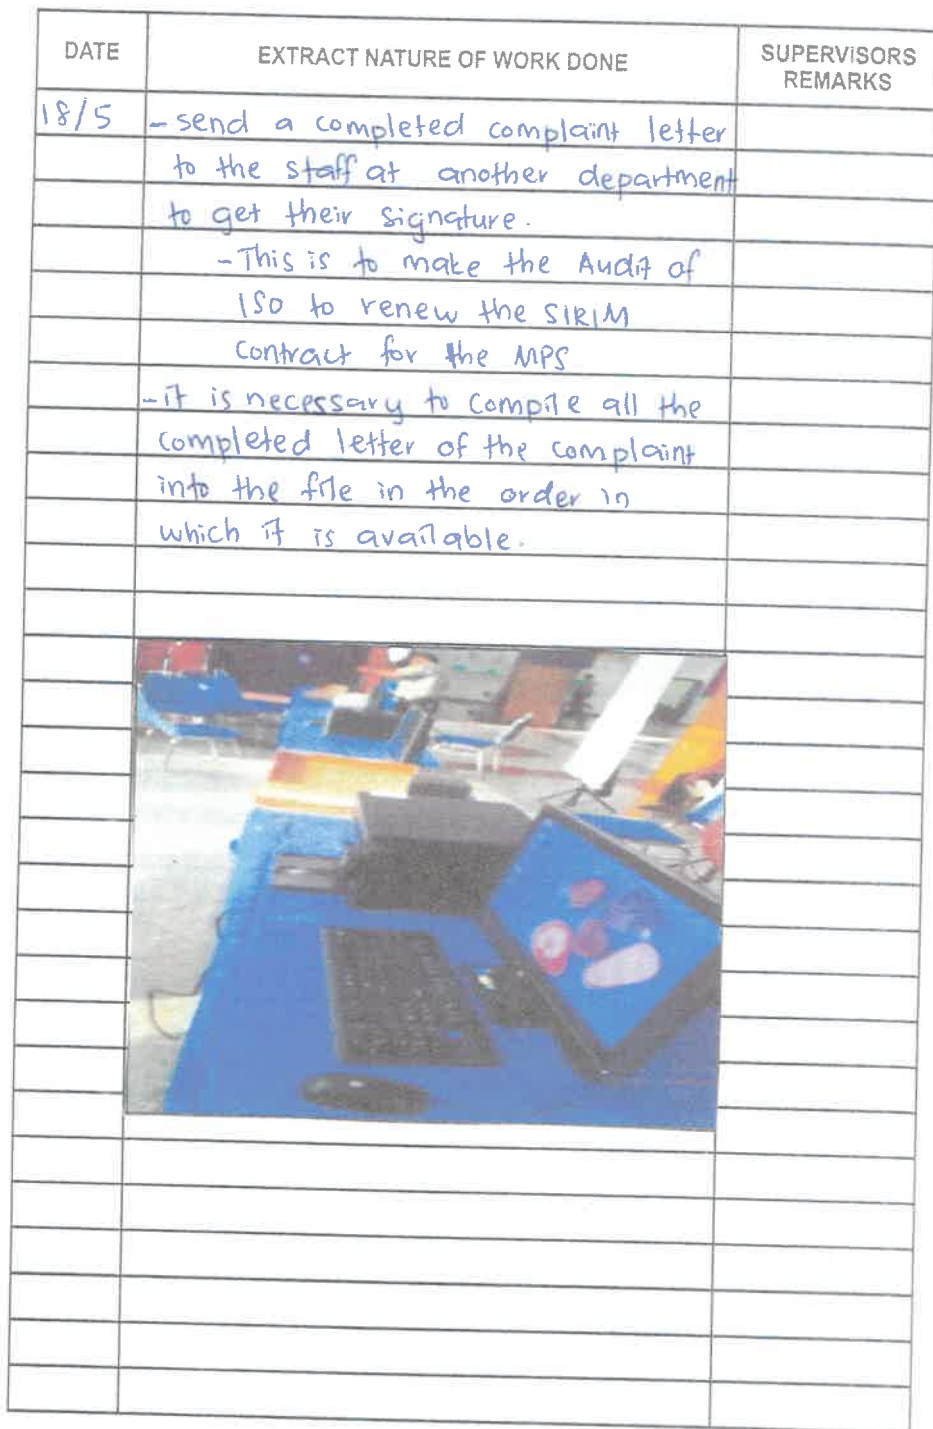 DATE
EXTRACT NATURE OF WORK DONE
SUPERVISORS
REMARKS
18/5
- send a completed complaint letter
to the staff at another department
to get their signature.
- This is to make the Audit of
ISO to renew the SIRIM
Contract for the MPS
- it is necessary to compile all the
completed letter of the complaint
into the file in the order in
which it is available.